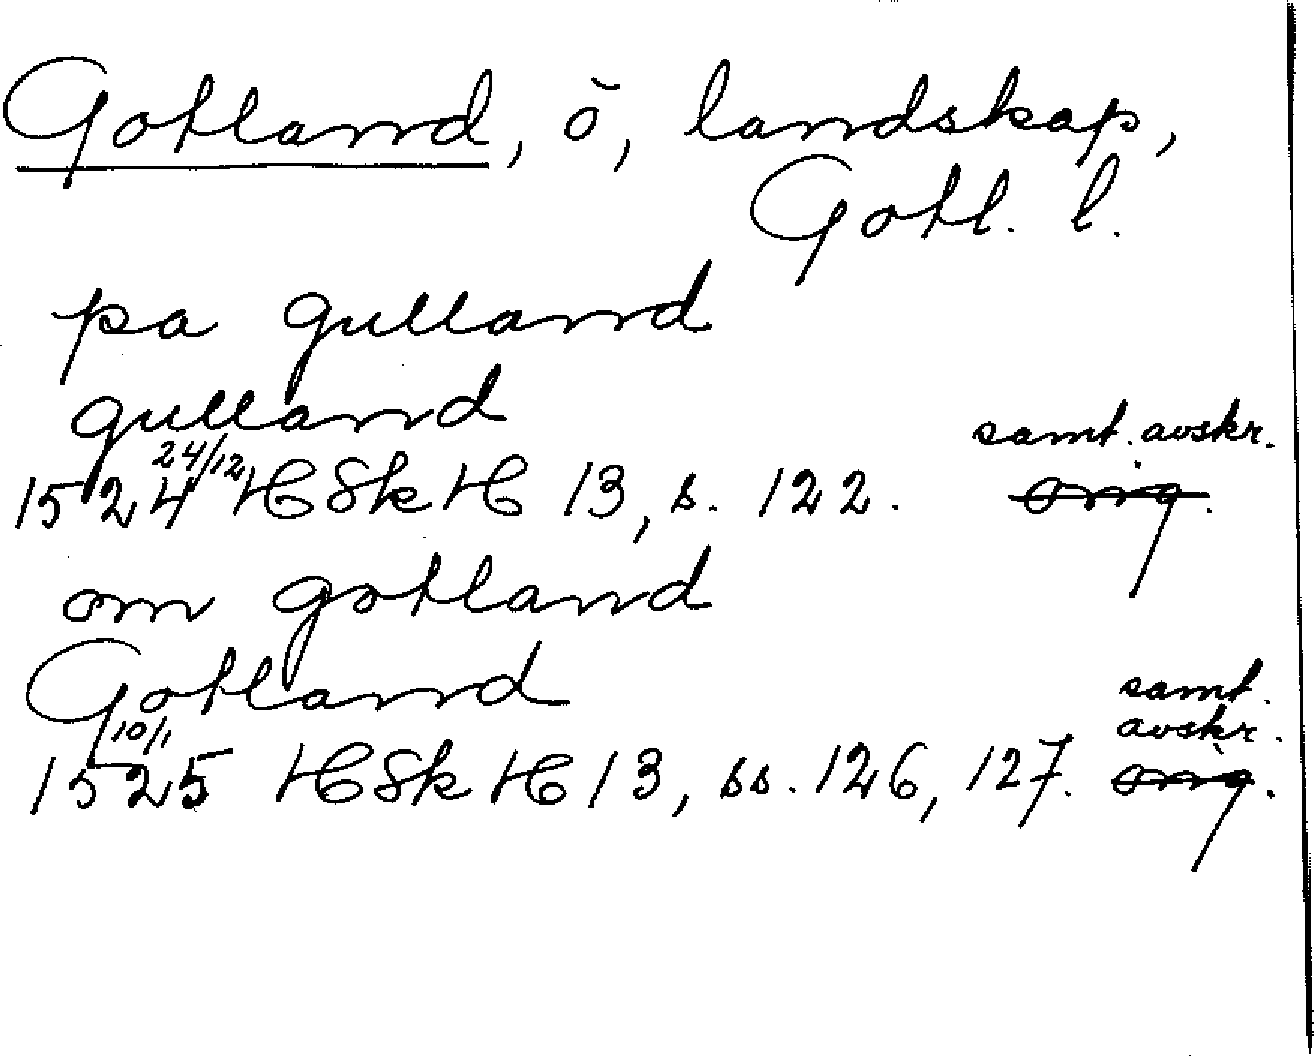 Gotland, ö, landskap,
Gotl. l.
pa gulland
gulland
samt. avskr.
1524 24/12 HSkH 13, s. 122. orig.
om gotland
Gotland
samt.
avskr.
1525 10/1 HSkH 13, ss. 126, 127. orig.